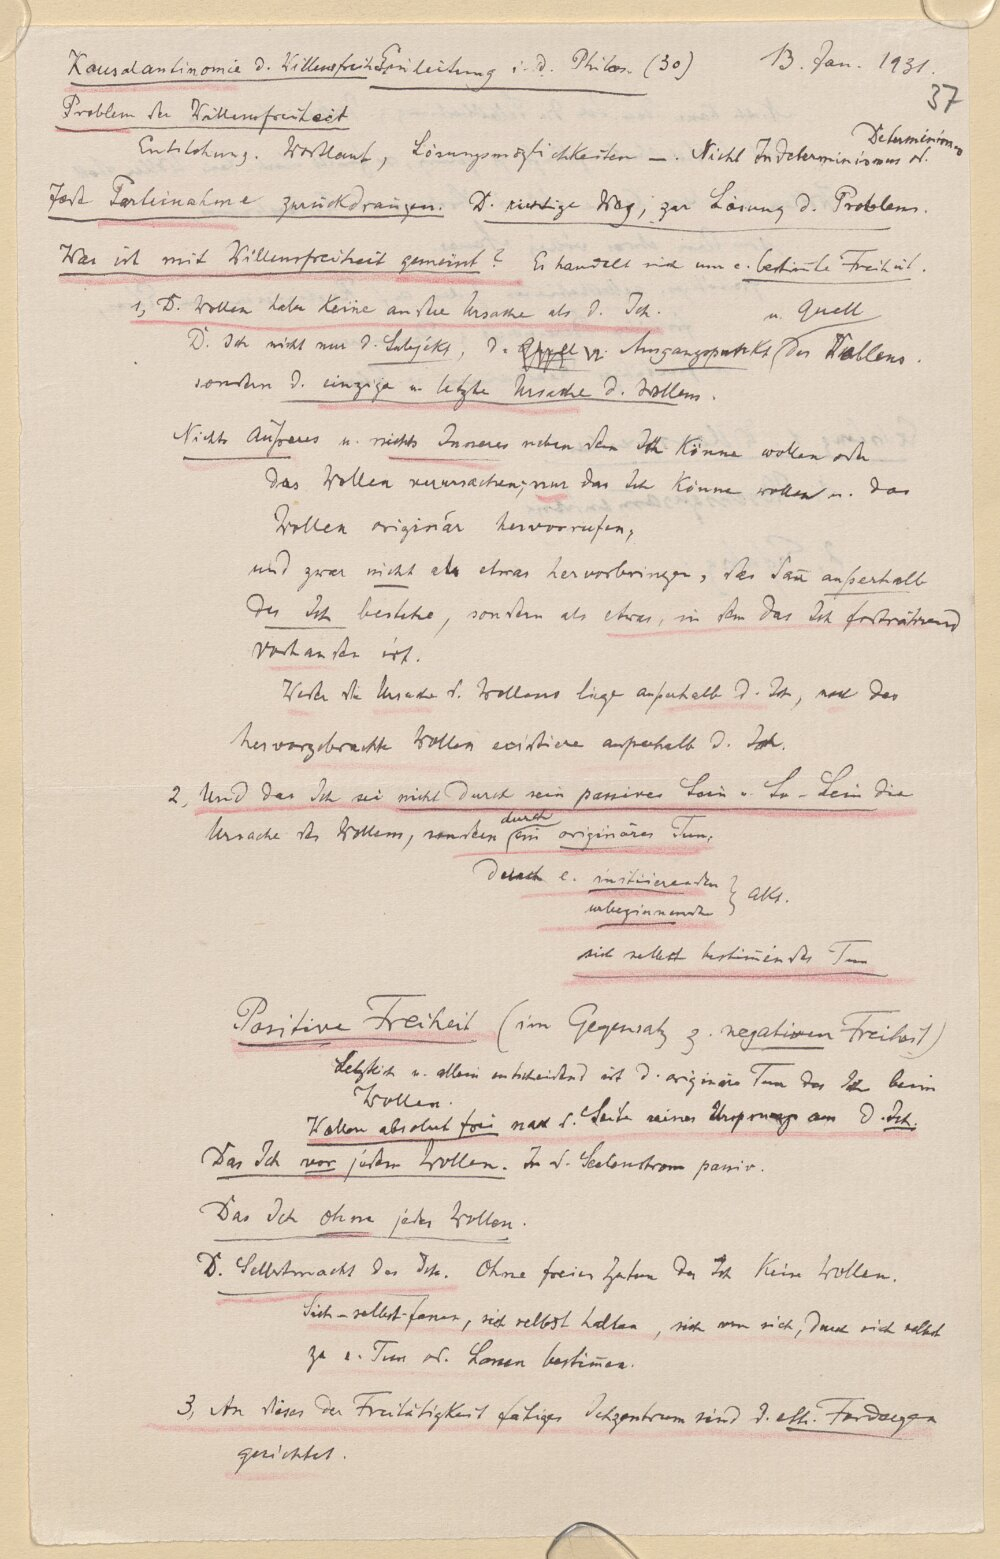 Kausalantinomie d. Willensfreiheit Einleitung i. d. Philos. (30) 13. Jan. 1931.
37
Problem der Willensfreiheit
Entstehung. Wortlaut, Lösungsmöglichkeiten –. Nicht Indeterminismus od. Determinismus
Jede Parteinahme zurückdrängen. D. richtige Weg, zur Lösung d. Problems.
Was ist mit Willensfreiheit gemeint? Es handelt sich um e. bestimmte Freiheit.
1, D. Wollen habe keine andere Ursache als d. Ich.
D. Ich nicht nur d. Subjekt, d. u. Quell u. Ausgangspunkt des Wollens.
sondern d. einzige u. letzte Ursache d. Wollens.
Nichts Äußeres u. nichts Inneres neben dem Ich könne wollen oder
das Wollen verursachen; nur das Ich könne wollen u. das
Wollen originär hervorrufen,
und zwar nicht als etwas hervorbringen, das dann außerhalb
des Ich bestehe, sondern als etwas, in dem das Ich fortwährend
vorhanden ist.
Weder die Ursache d. Wollens liege außerhalb d. Ich, noch das
hervorgebrachte Wollen existiere außerhalb d. Ich.
2, Und das Ich sei nicht durch sein passives Sein u. So-Sein die
Ursache des Wollens, sondern durch ein originäres Tun,
durch e. initiierenden
urbeginnende } Akt.
sich selbst bestimmendes Tun
Positive Freiheit (im Gegensatz z. negativen Freiheit)
Letztlich u. allein entscheidend ist d. originäre Tun des Ich beim
Wollen.
Wollen absolut frei nach d. Seite seines Ursprungs aus d. Ich.
Das Ich vor jedem Wollen. In d. Seelenstrom passiv.
Das Ich ohne jedes Wollen.
D. Selbstmacht des Ich. Ohne freies Zutun des Ich kein Wollen.
Sich-selbst-fassen, sich selbst halten, sich von sich, durch sich selbst
zu e. Tun od. Lassen bestimmen.
3, An dieses der Freitätigkeit fähiges Ichzentrum sind d. eth. Fordergen
gerichtet.